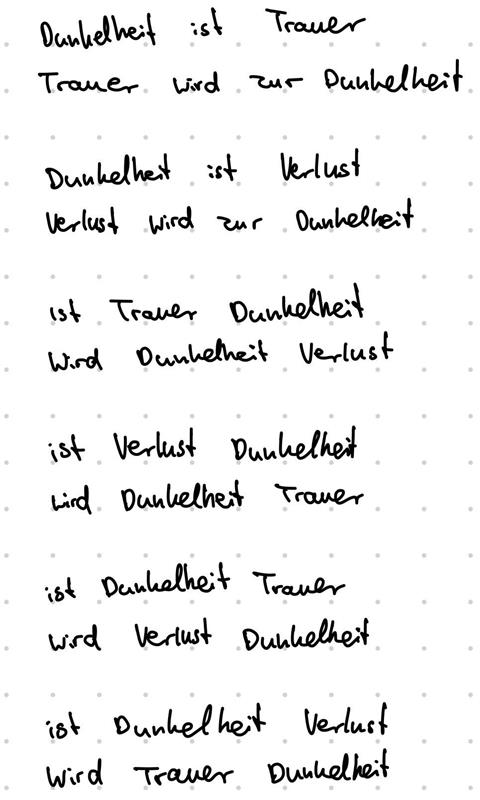 Dunkelheit ist Trauer
Trauer wird zur Dunkelheit
Dunkelheit ist Verlust
Verlust wird zur Dunkelheit
ist Trauer Dunkelheit
Wird Dunkelheit Verlust
ist Verlust Dunkelheit
wird Dunkelheit Trauer
ist Dunkelheit Trauer
wird Verlust Dunkelheit
ist Dunkelheit Verlust
Wird Trauer Dunkelheit